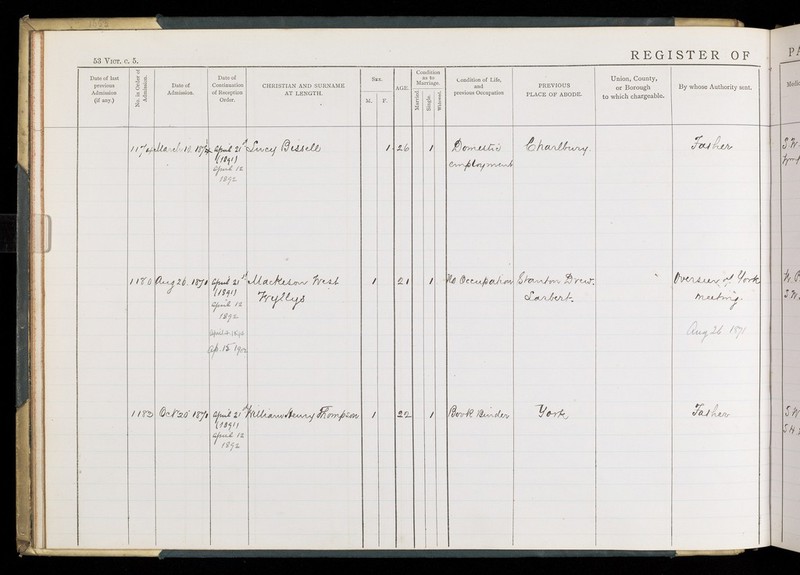 53 VICT. c. 5.
REGISTER OF
PA
Date of last previous Admission (if any.)
No. in Order of Admission.
Date of Admission.
Date of Continuation of Reception Order.
CHRISTIAN AND SURNAME AT LENGTH.
Sex.
M.
F.
AGE.
Condition as to Marriage.
Married.
Single.
Widowed.
Condition of Life, and previous Occupation
PREVIOUS PLACE OF ABODE.
Union, County, or Borough to which chargeable.
By whose Authority sent.
March 12 April 21 Lucey Bissell / 26 / Domestic Charlbury Father
(1891) employment
April 12
1892
1180 Aug 26. 1871 April 21 West / 21 / No Occupation Stanton Drew. Overseer of York
(1891) Wyllys meeting.
April 12
1892
Aug 26 1871
Ap. 15 1902
Oct 20 1871 April 21 William Henry Thompson / 22 / Book Binder York Father
(1891)
April 12
1892